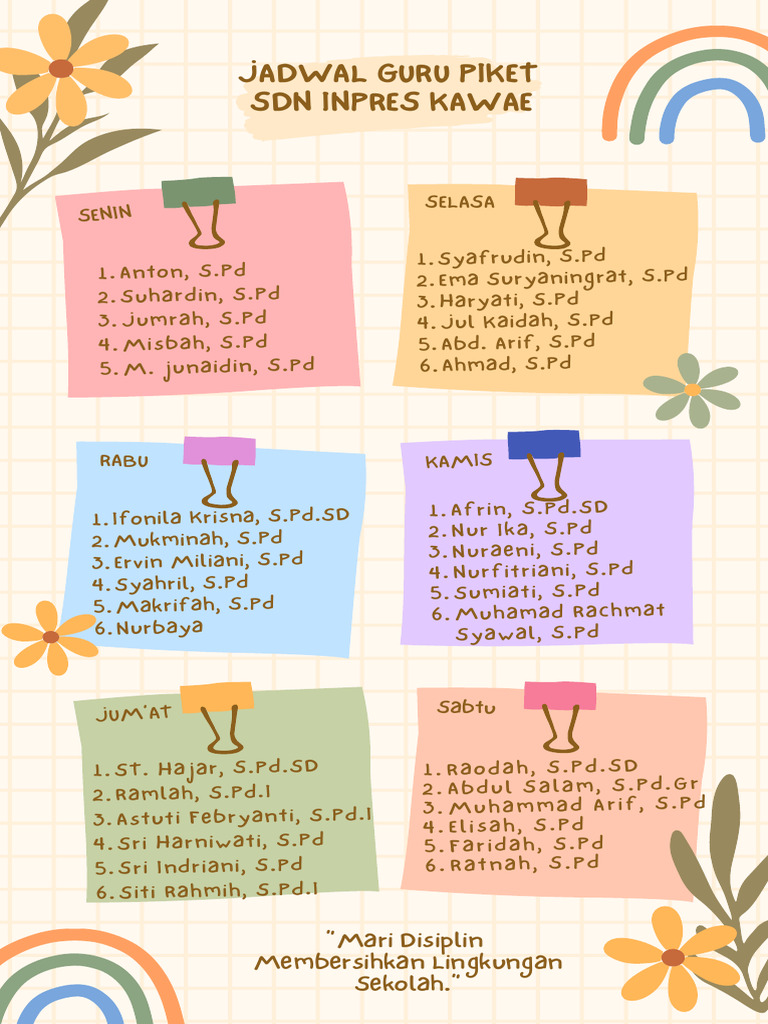 JADWAL GURU PIKET
SDN INPRES KAWAE
SENIN
1. Anton, S.Pd
2. Suhardin, S.Pd
3. Jumrah, S.Pd
4. Misbah, S.Pd
5. M. junaidin, S.Pd
SELASA
1. Syafrudin, S.Pd
2. Ema Suryaningrat, S.Pd
3. Haryati, S.Pd
4. Jul Kaidah, S.Pd
5. Abd. Arif, S.Pd
6. Ahmad, S.Pd
RABU
1. Ifonila Krisna, S.Pd.SD
2. Mukminah, S.Pd
3. Ervin Miliani, S.Pd
4. Syahril, S.Pd
5. Makrifah, S.Pd
6. Nurbaya
KAMIS
1. Afrin, S.Pd.SD
2. Nur Ika, S.Pd
3. Nuraeni, S.Pd
4. Nurfitriani, S.Pd
5. Sumiati, S.Pd
6. Muhamad Rachmat
Syawal, S.Pd
JUM'AT
1. ST. Hajar, S.Pd.SD
2. Ramlah, S.Pd.I
3. Astuti Febryanti, S.Pd.I
4. Sri Harniwati, S.Pd
5. Sri Indriani, S.Pd
6. Siti Rahmih, S.Pd.I
Sabtu
1. Raodah, S.Pd.SD
2. Abdul Salam, S.Pd.Gr
3. Muhammad Arif, S.Pd
4. Elisah, S.Pd
5. Faridah, S.Pd
6. Ratnah, S.Pd
"Mari Disiplin
Membersihkan Lingkungan
Sekolah."